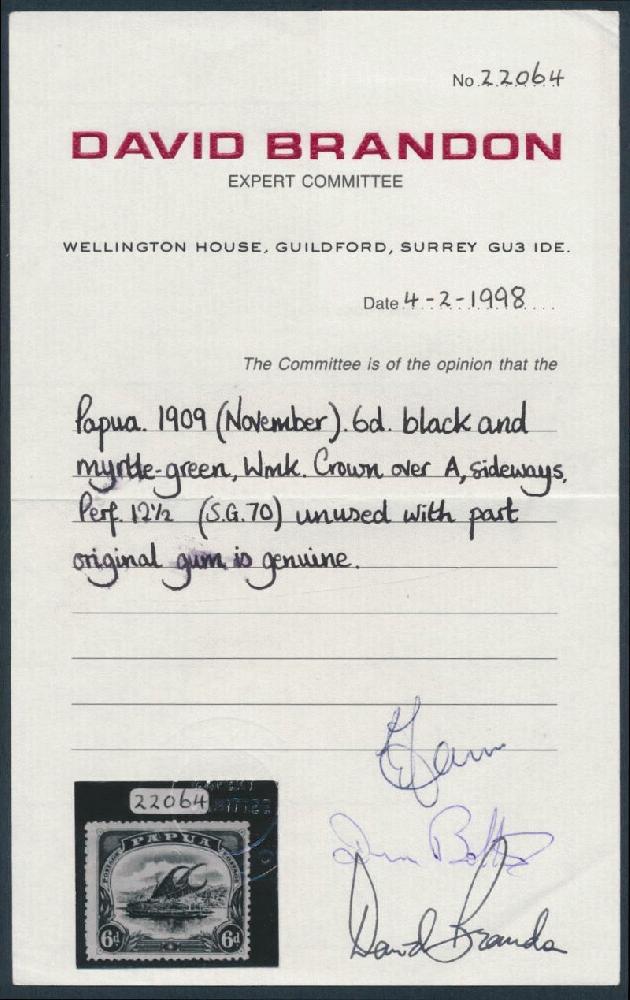 No. 22064
DAVID BRANDON
EXPERT COMMITTEE
WELLINGTON HOUSE, GUILDFORD, SURREY GU3 IDE.
Date 4-2-1998
The Committee is of the opinion that the
Papua. 1909 (November). 6d. black and
myrtle-green, Wmk. Crown over A, sideways,
Perf. 12½ (S.G. 70) unused with part
original gum is genuine.
22064
PAPUA
6d 6d
David Brandon